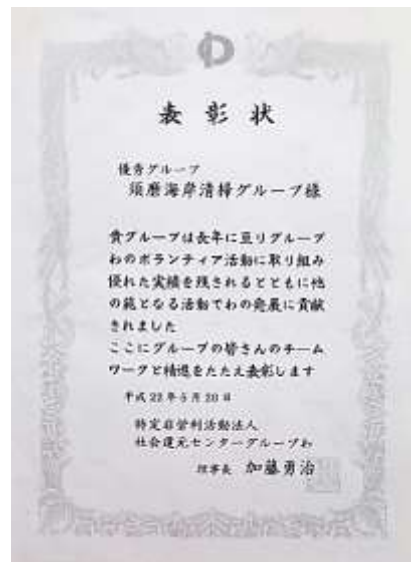 表彰状
優秀グループ
須磨海岸清掃グループ様
貴グループは長年に亘りグループ
わのボランティア活動に取り組み
優れた実績を残されるとともに他
の範となる活動でわの発展に貢献
されました
ここにグループの皆さんのチーム
ワークと精進をたたえ表彰します
平成22年5月20日
特定非営利活動法人
社会還元センターグループわ
理事長 加藤勇治